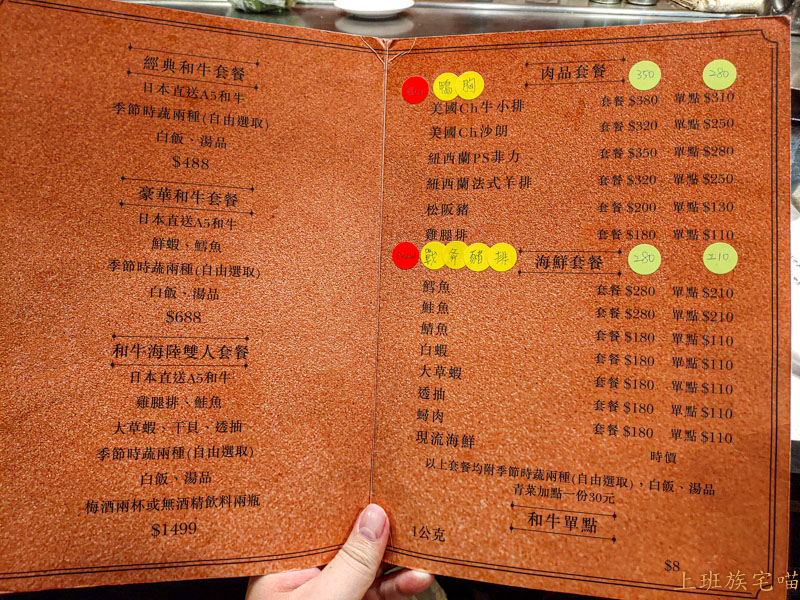 經典和牛套餐
日本直送A5和牛
季節時蔬兩種(自由選取)
白飯、湯品
$488
豪華和牛套餐
日本直送A5和牛
鮮蝦、鱈魚
季節時蔬兩種(自由選取)
白飯、湯品
$688
和牛海陸雙人套餐
日本直送A5和牛
雞腿排、鮭魚
大草蝦、干貝、透抽
季節時蔬兩種(自由選取)
白飯、湯品
梅酒兩杯或無酒精飲料兩瓶
$1499
肉品套餐
鴨胸 350 280
美國Ch牛小排 套餐 $380 單點 $310
美國Ch沙朗 套餐 $320 單點 $250
紐西蘭PS菲力 套餐 $350 單點 $280
紐西蘭法式羊排 套餐 $320 單點 $250
松阪豬 套餐 $200 單點 $130
雞腿排 套餐 $180 單點 $110
戰斧豬排 280 210
海鮮套餐
鱈魚 套餐 $280 單點 $210
鮭魚 套餐 $280 單點 $210
鯖魚 套餐 $180 單點 $110
白蝦 套餐 $180 單點 $110
大草蝦 套餐 $180 單點 $110
透抽 套餐 $180 單點 $110
蟳肉 套餐 $180 單點 $110
現流海鮮 時價
以上套餐均附季節時蔬兩種(自由選取)，白飯、湯品
青菜加點一份30元
和牛單點
1公克 $8
上班族宅喵